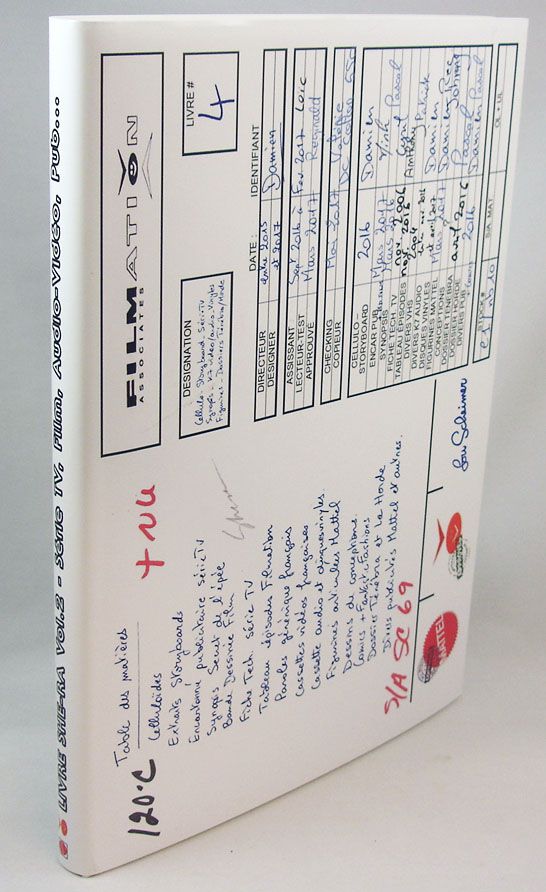 LIVRE SHE-RA Vol.2 - Série TV. Film. Audio-Vidéo. Pub...
FILMATION
ASSOCIATES
LIVRE #
4
DESIGNATION
Cellulo - Storyboard - Série TV
Synops - K7 vidéo/audio - Vinyles
Figurines - Dossiers Ténébra/Horde
DATE :
IDENTIFIANT
DIRECTEUR
DESIGNER
entre 2015
et 2017
Damien
ASSISSANT
LECTEUR-TEST
APPROUVÉ
Sept 2016 à Fev. 2017 Loïc
Mars 2017 Reginald
CHECKING
COPIEUR
Mai 2017 Valérie
CELLULO
STORYBOARD
ENCAR PUB
SYNOPSIS
FICHE TECH TV
TABLEAU ÉPISODES
DIVERS VHS
DIVERS K7 AUDIO
DISQUES VINYLES
FIGURINES MATTEL
CONCEPTIONS
DOSSIER TENEBRA
DOSSIER HORDE
DIVERS PUB
2016
Mars 2016
nov. 2006
nov. 2016
2004
et avril 2017
Mars 2017
avril 2016
2016
Damien
Pascal
Cyril
Anthony
Patrick
Damien
Damien
Johnny
Pascal
Damien Pascal
S/A MAT
OL - UL
120°C
Table des matières
+ NU
Celluloïdes
Extraits Storyboards
Encartonné publicitaire série TV
Synopsis Secret de l'épée
Bande Dessinée Film
Fiche Tech. série TV
Tableau épisodes Filmation
Paroles générique français
Cassettes vidéos françaises
Cassette audio et disques vinyles
Figurines articulées Mattel
Dessins de conceptions
Comics + Fantastic Fashions
Dossier Ténébra et La Horde
Divers publicités Mattel et autres.
S/A SC 69
MATTEL
Lou Scheimer